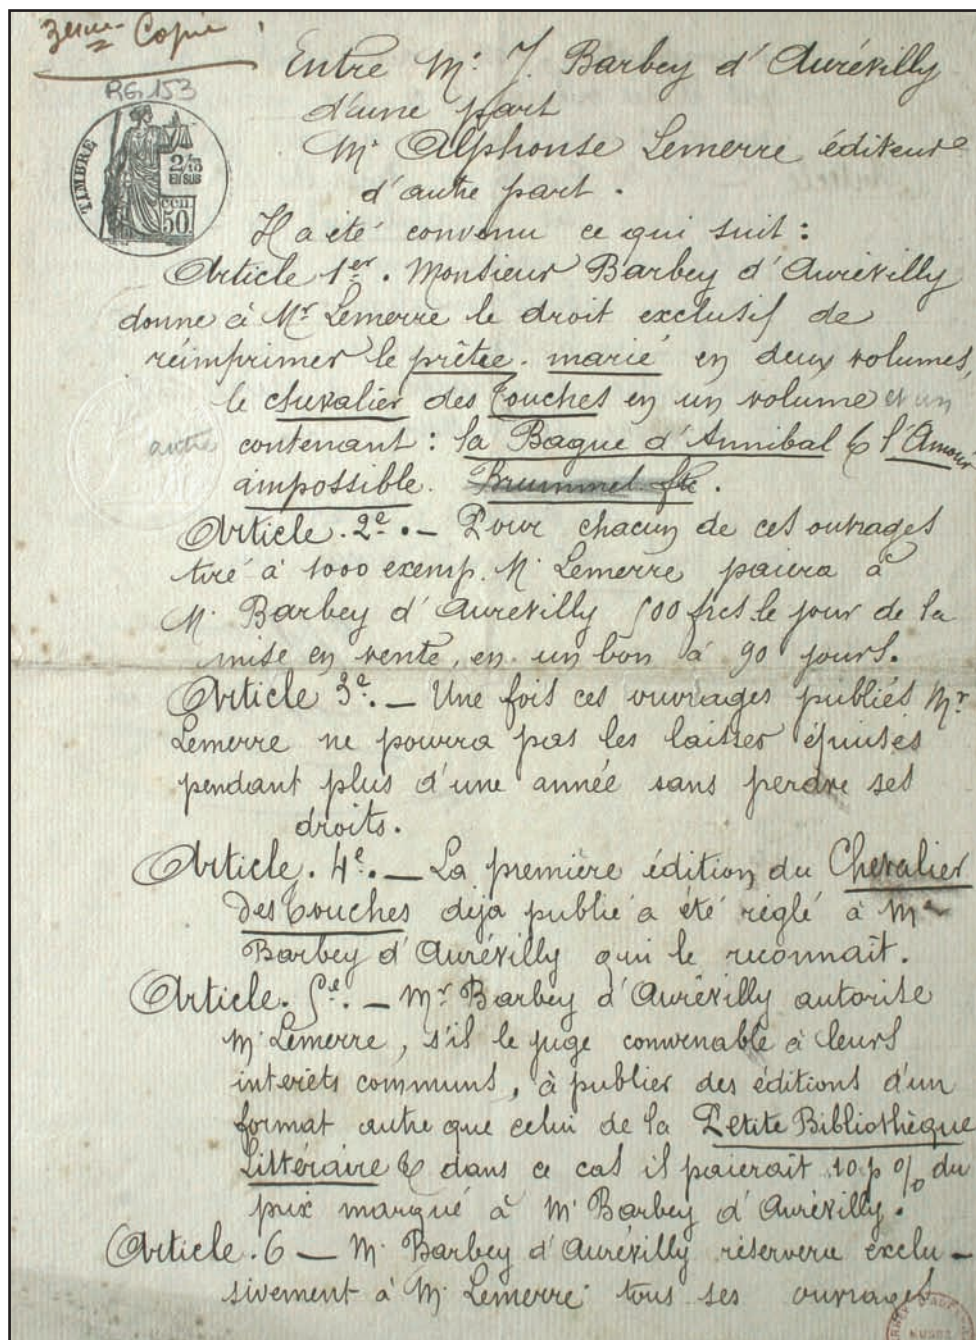 3eme Copie
RG 153
TIMBRE
2/10
EN SUS
50.
Entre Mr. J. Barbey d'Aurévilly
d'une part
Mr Alphonse Lemerre éditeur
d'autre part.
Il a été convenu ce qui suit :
Article 1er. Monsieur Barbey d'Aurévilly
donne à Mr Lemerre le droit exclusif de
réimprimer le prêtre marié en deux volumes,
le chevalier des Touches en un volume et un
autre contenant : la Bague d'Annibal & l'Amour
impossible. Brummel
Article. 2e. — Pour chacun de ces ouvrages
tiré à 1000 exemp. M. Lemerre paiera à
M. Barbey d'Aurevilly 500 frcs. le jour de la
mise en vente, en un bon à 90 jours.
Article 3e. — Une fois ces ouvrages publiés Mr
Lemerre ne pourra pas les laisser épuisés
pendant plus d'une année sans perdre ses
droits.
Article. 4e. — La première édition du Chevalier
des Touches déjà publié a été réglé à Mr
Barbey d'Aurévilly qui le reconnaît.
Article. 5e. — Mr Barbey d'Aurévilly autorise
M. Lemerre, s'il le juge convenable à leurs
intérêts communs, à publier des éditions d'un
format autre que celui de la Petite Bibliothèque
Littéraire & dans ce cas il paierait 10 p % du
prix marqué à M. Barbey d'Aurévilly.
Article. 6 — M. Barbey d'Aurévilly réservera exclu-
sivement à M. Lemerre tous ses ouvrages